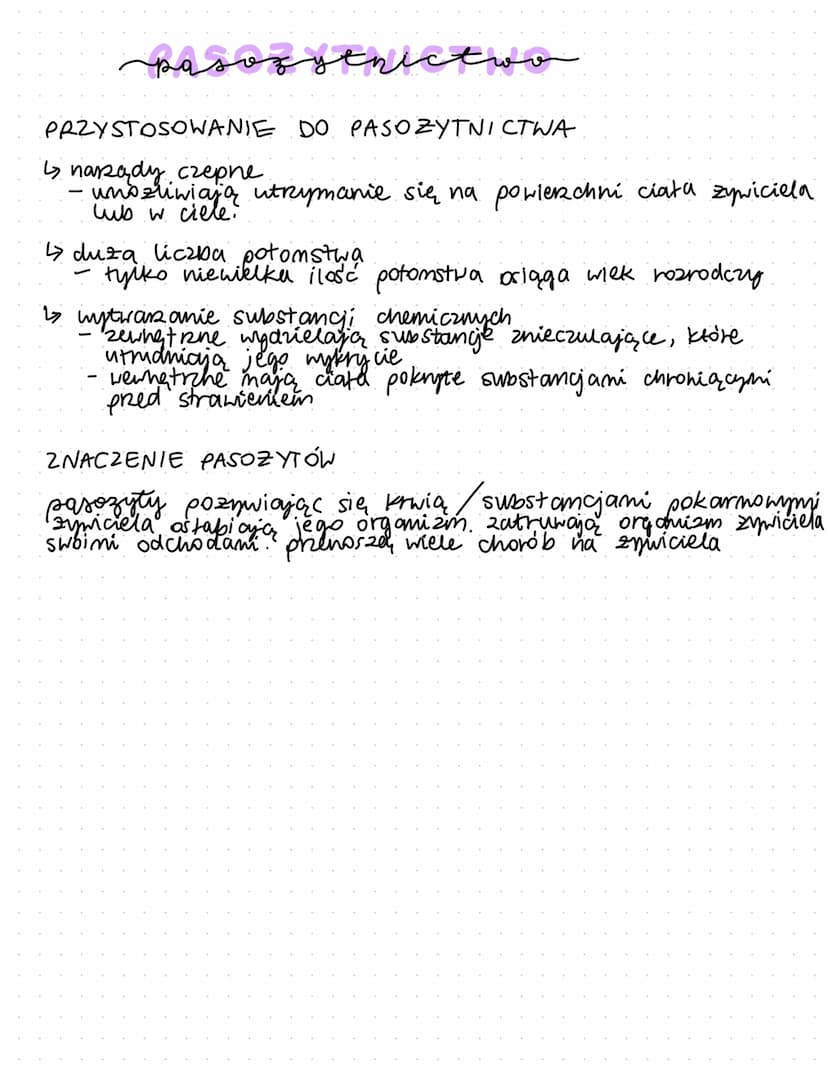 PASOŻYTNICTWO
pasożytnictwo
PRZYSTOSOWANIE DO PASOŻYTNICTWA
↳ narządy czepne
- umożliwiają utrzymanie się na powierzchni ciała żywiciela
lub w ciele.
↳ duża liczba potomstwa
- tylko niewielka ilość potomstwa osiąga wiek rozrodczy
↳ wytwarzanie substancji chemicznych
- zewnętrzne wydzielają substancje znieczulające, które
utrudniają jego wykrycie
- wewnętrzne mają ciała pokryte substancjami chroniącymi
przed strawieniem
ZNACZENIE PASOŻYTÓW
pasożyty pozywiając się krwią / substancjami pokarmowymi
żywiciela osłabiają jego organizm. zatruwają organizm żywiciela
swoimi odchodami. przenoszą wiele chorób na żywiciela